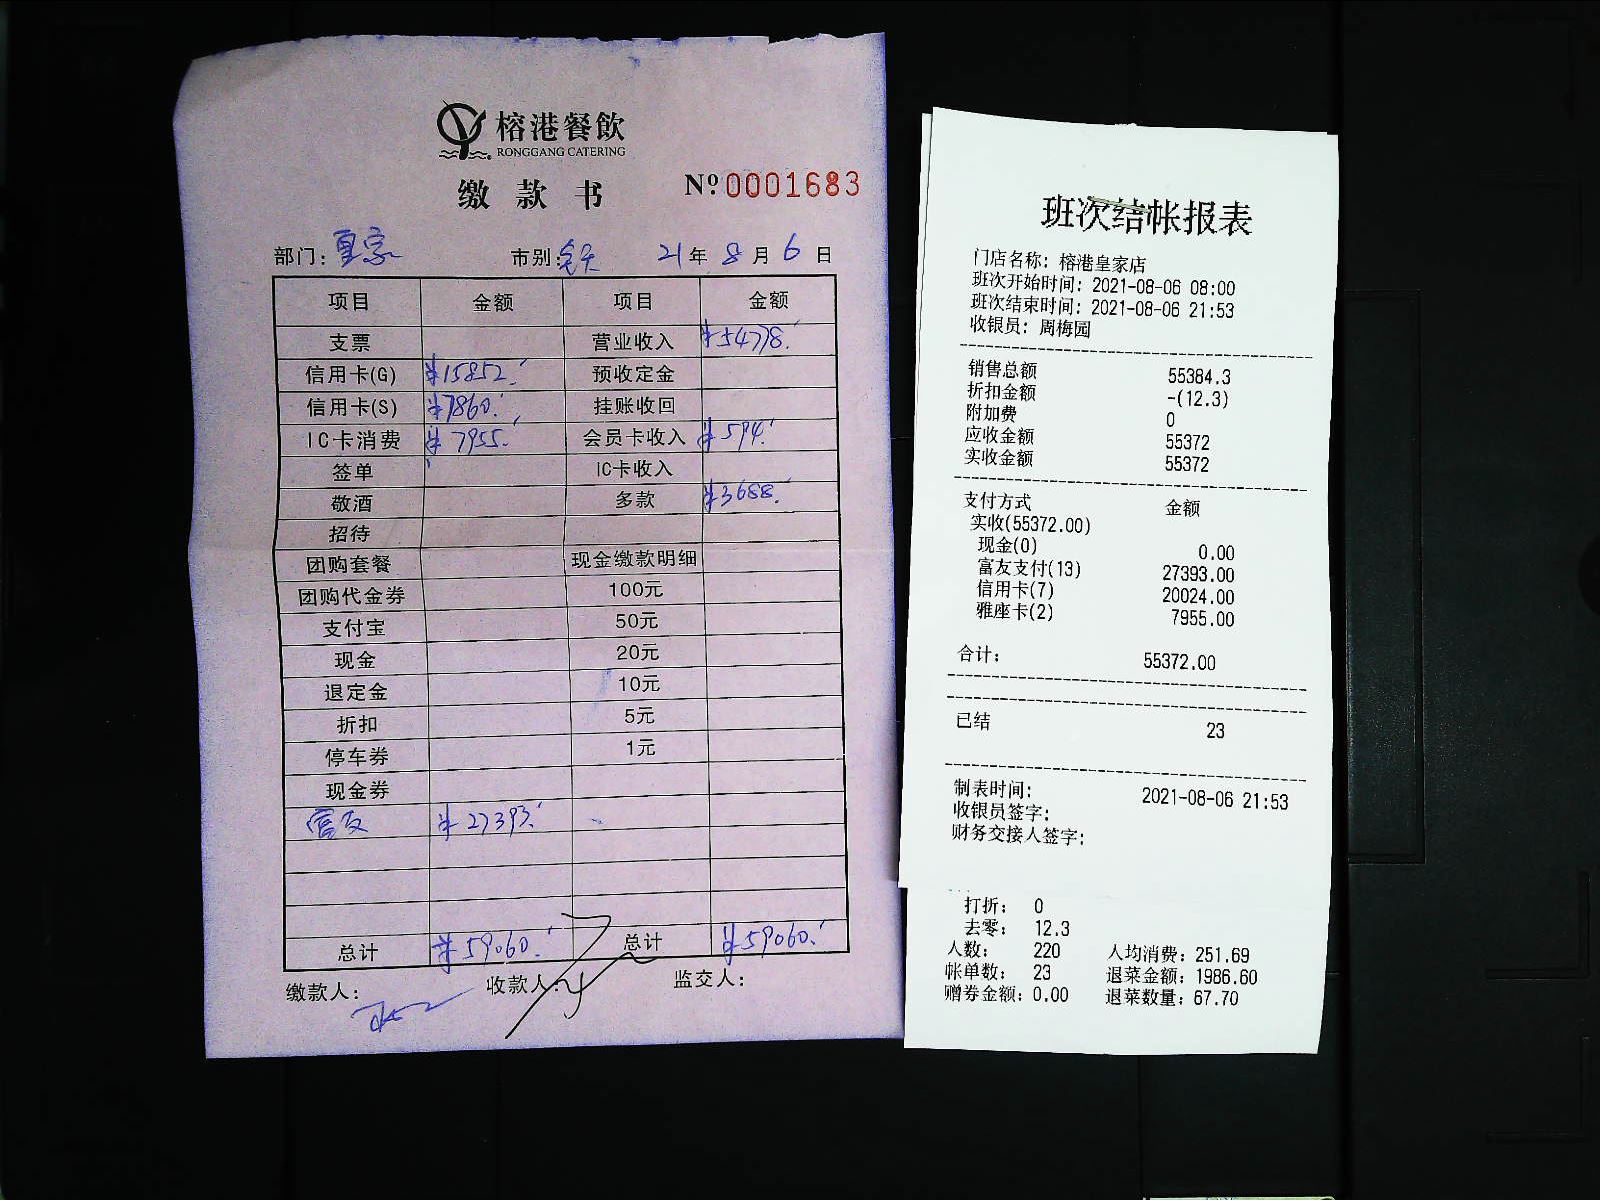 榕港餐飲
RONGGANG CATERING
缴款书 Nº 0001683
部门: 皇家 市别: 全天 21年 8月 6日
项目 金额 项目 金额
支票 营业收入 ¥54778.
信用卡(G) ¥15852. 预收定金
信用卡(S) ¥7860. 挂账收回
IC卡消费 ¥7955. 会员卡收入 ¥594.
签单 IC卡收入
敬酒 多款 ¥3688.
招待
团购套餐 现金缴款明细
团购代金券 100元
支付宝 50元
现金 20元
退定金 10元
折扣 5元
停车券 1元
现金券
富友 ¥27393.
总计 ¥59060. 总计 ¥59060.
缴款人: 收款人: 监交人:
班次结帐报表
门店名称: 榕港皇家店
班次开始时间: 2021-08-06 08:00
班次结束时间: 2021-08-06 21:53
收银员: 周梅园
销售总额 55384.3
折扣金额 -(12.3)
附加费 0
应收金额 55372
实收金额 55372
支付方式 金额
实收(55372.00)
现金(0) 0.00
富友支付(13) 27393.00
信用卡(7) 20024.00
雅座卡(2) 7955.00
合计: 55372.00
已结 23
制表时间: 2021-08-06 21:53
收银员签字:
财务交接人签字:
打折: 0
去零: 12.3
人数: 220 人均消费: 251.69
帐单数: 23 退菜金额: 1986.60
赠券金额: 0.00 退菜数量: 67.70